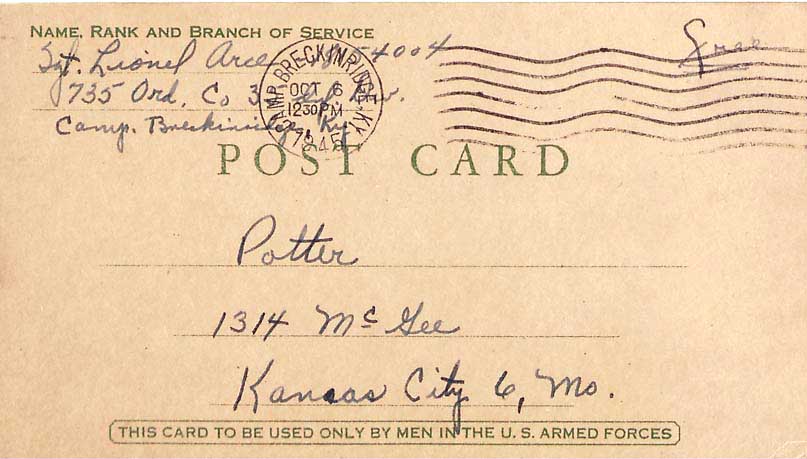 NAME, RANK AND BRANCH OF SERVICE
Sgt. Lionel Arce 54004
Free
735 Ord. Co 35 Div.
Camp. Breckinridge, Ky
CAMP BRECKINRIDGE, KY.
OCT 6
12 30 PM
1945
POST CARD
Potter
1314 McGee
Kansas City 6, Mo.
THIS CARD TO BE USED ONLY BY MEN IN THE U. S. ARMED FORCES